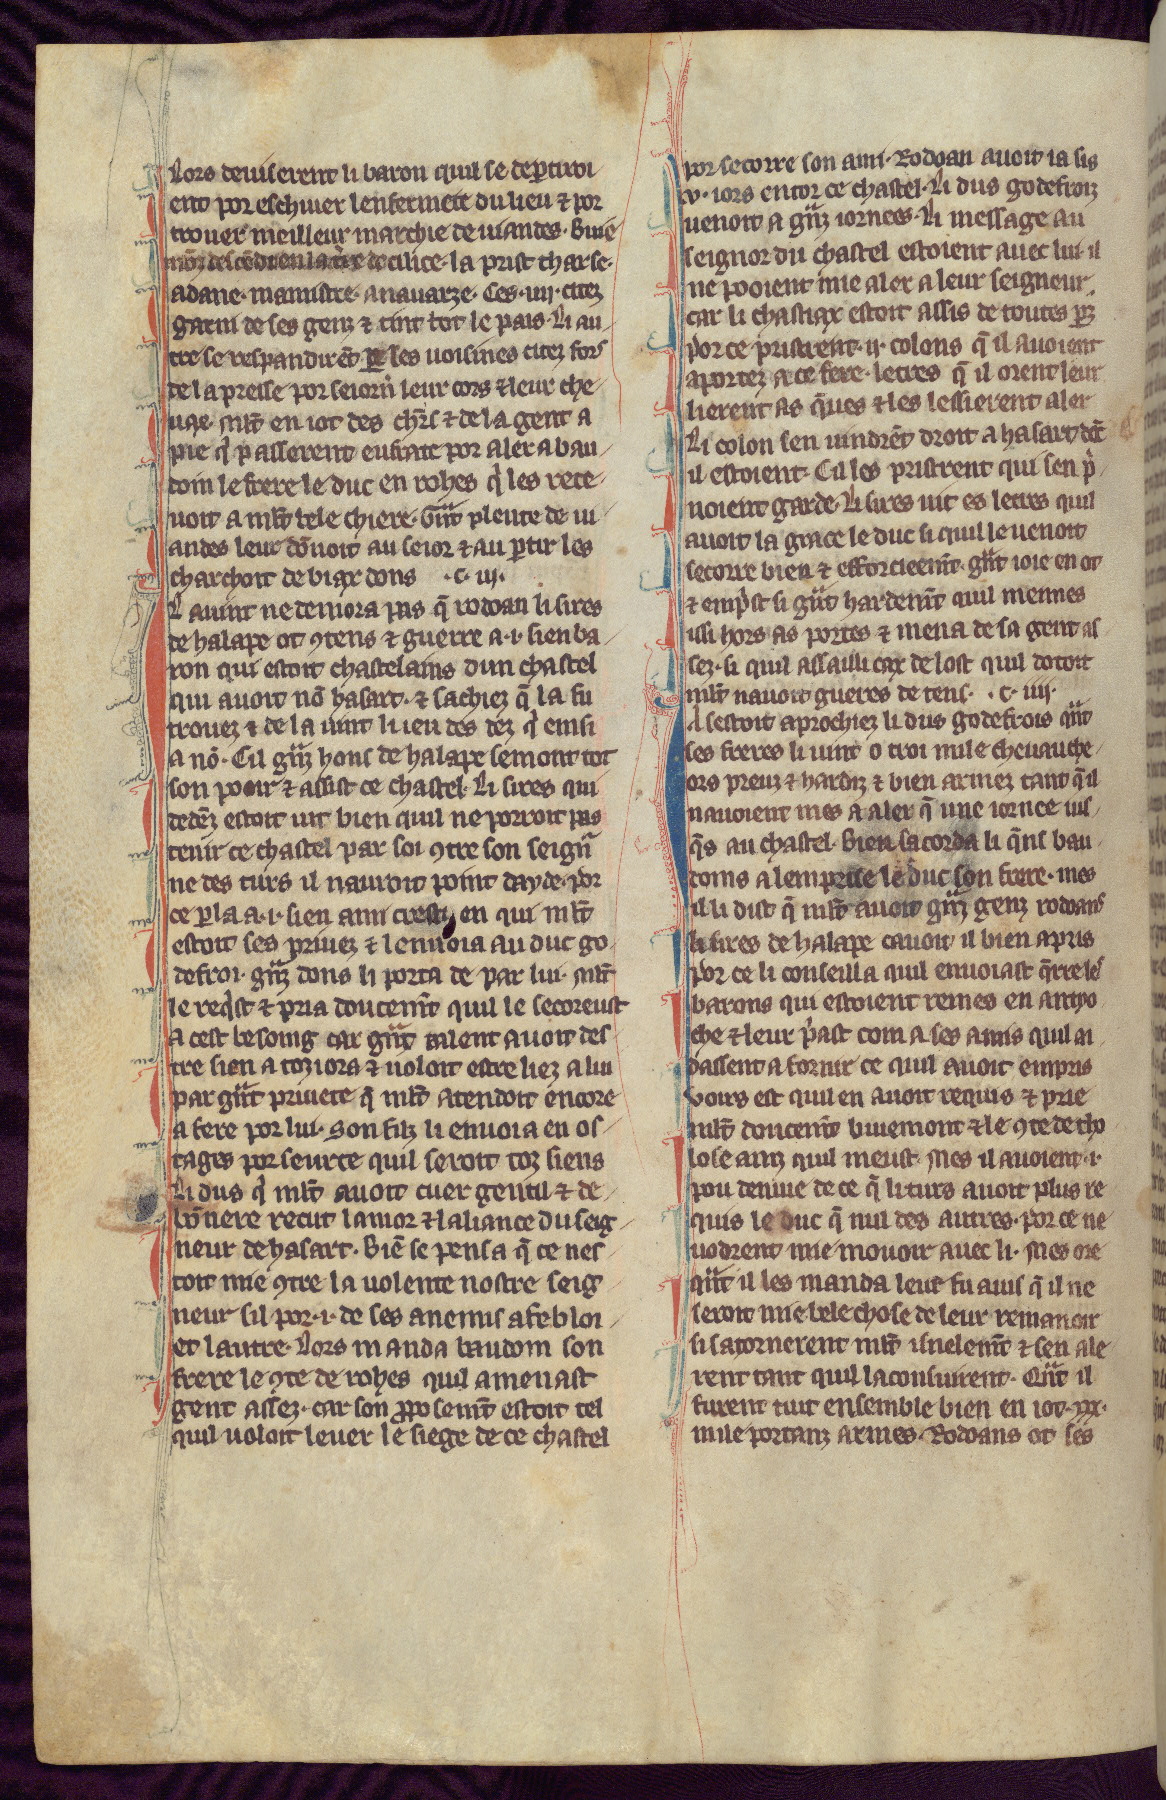 Lors deuiserent li baron quil se dep̲tiroi
ent por eschiuer lenfermete du lieu ⁊ por
trouer meilleur marchie de uiandes. Buie
mõz desc̃edi en la t̃re de cilice. la prist tharse.
adane. mamistre. anauarze. Ces .iiij. citez
garni de ses genz ⁊ tint tot le pais. Li au/
tre se respandirẽt p̲ les uoisines citez fors
de la presse por seiorn̄ leur cors ⁊ leur che/
uax. Ml̃t en iot des ch̃rs ⁊ de la gent a
pie q̇ passerent eufrate por aler a bau/
doin le frere le duc en rohes q̇ les rece/
uoit a ml̃t bele chiere. Gñt plente de ui
andes leur dõnoit au seior ⁊ au p̲tir les
charchoit de biax dons .c. iij.
L auint ne demora pas q̃ rodoan li sires
de halape ot ꝯtens ⁊ guerre a .i. sien ba/
ron qui estoit chastelains dun chastel
qui auoit nõ hasart. ⁊ sachiez q̃ la fu
trouez ⁊ de la uint li ieu des dez q̇ einsi
a nõ. Cil g̃nz hons de halape semont tot
son pooir ⁊ assist ce chastel. Li sires qui
dedẽz estoit uit bien quil ne porroit pas
tenir ce chastel par soi ꝯtre son seign̄
ne des turs il nauroit point dayde. por
ce p̲la a .i. sien ami cresti en qui ml̃t
estoit ses priuez ⁊ lenuoia au duc go/
defroi. g̃nz dons li porta de par lui. Ml̃t
le req̇st ⁊ pria doucem̃t quil le secoreust
a cest besoing car g̃nt talent auoit des
tre sien a toziors ⁊ uoloit estre liez a lui
par g̃nt priuete q̃ ml̃t atendoit encore
a fere por lui. Son filz li enuoia en os/
tages por seurte quil seroit toz siens
Li dus q̇ ml̃t auoit cuer gentil ⁊ de
bõnere recut lamor ⁊ laliance du seig/
neur de hasart. Biẽ se pensa q̃ ce nes/
toit mie ꝯtre la uolente nostre seig
neur sil por .i. de ses anemis afebloi/
et lautre. Lors manda baudoin son
frere le ꝯte de rohes quil amenast
gent assez. car son p̲posem̃t estoit tel
quil uoloit leuer le siege de ce chastel
por secorre son ami. Rodoan auoit ia sis
.v. iors entor ce chastel. Li dus godefroiz
uenoit a g̃nz iornees. Li message au
seignor du chastel estoient auec lui. il
ne pooient mie aler a leur seigneur.
car li chastiax estoit assis de toutes p̲z
por ce pristrent .ij. colons q̃ il auoient
aportez a ce fere. letres q̃ il orent leur
lierent as q̃ues ⁊ les lessierent aler
Li colon sen uindrẽt droit a hasart dõt
il estoient. Cil les pristrent qui sen p̃/
noient garde. Li sires uit es letres quil
auoit la grace le duc si quil le uenoit
secorre bien ⁊ efforcieem̃t. g̃nt ioie en ot
⁊ emp̃st si g̃nt hardem̃t quil meimes
issi hors as portes ⁊ mena de sa gent as
sez. si quil assailli cax de lost quil dotoit
ml̃t nauoit gueres de tens. .c. iiij.
A sestoit aprochiez li dus godefrois q̃nt
ses freres li uint o troi mile cheuauche/
ors preuz ⁊ hardiz ⁊ bien armez tant q̃ il
nauoient mes a aler q̃ une iornee ius/
q̃s au chastel. Bien sacorda li q̃ns bau/
doins a lemprise le duc son frere. mes
il li dist q̃ ml̃t auoit g̃nz genz rodoans
li sires de halape cauoit il bien apris
por ce li conseilla quil enuoiast q̃rre les
barons qui estoient remes en antyo
che ⁊ leur p̃ast com a ses amis quil ai
dassent a fornir ce quil auoit empris
voirs est quil en auoit requis ⁊ prie
ml̃t doucem̃t buiemont ⁊ le ꝯte de tho
lose ainz quil meust. Mes il auoient .i.
pou denuie de ce q̃ li turs auoit plus re
quis le duc q̃ nul des autres. por ce ne
uodrent mie mouoir auec li. Mes ore
q̃nt il les manda leur fu auis q̃ il ne
seroit mie bele chose de leur remanoir
si satornerent ml̃t isnelem̃t ⁊ sen ale
rent tant quil laconsuirent. Q̃nt il
furent tuit ensemble bien en iot .xxx.
mile portanz armes. Rodoans ot ses